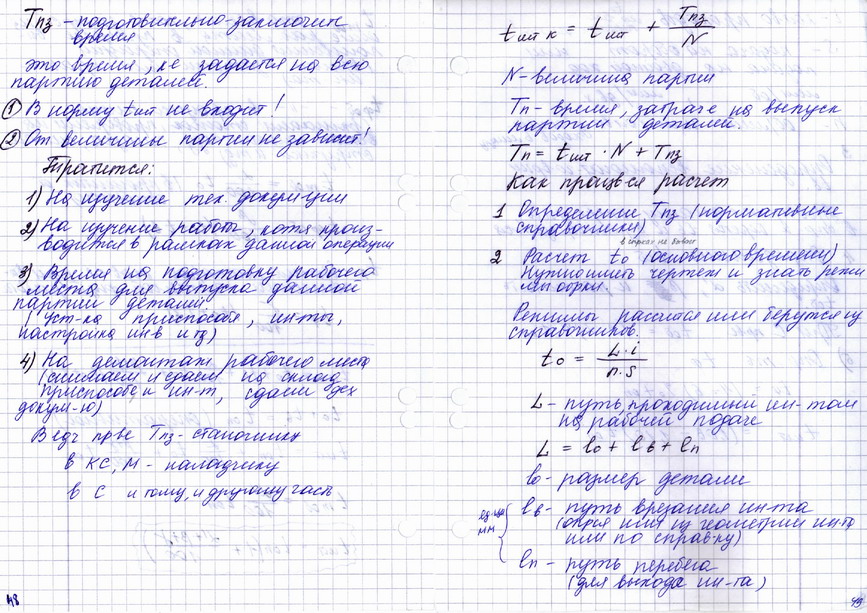 Тпз - подготовительно-заключит
время
это время, кe задается на всю
партию деталей.
① В норму tшт не входит!
② От величины партии не зависит!
Тратится:
1) На изучение тех. докум-ции
2) На изучение работы, котя произ-
водится в рамках данной операции
3) Время на подготовку рабочего
места для выпуска данной
партии детали
(уст-ка приспособл, ин-ты,
настройка ин-в и тд)
4) На демонтаж рабочего места
(снимаем и сдаем на склад
приспособл и ин-т, сдаем тех
докум-ю)
В едч прве Тпз - станочника
в КС, М - наладчику
в С и тому, и другому часть
48
tшт к = tшт + Тпз/N
N - величина партии
Тп - время, затрач е на выпуск
партии деталей.
Тп = tшт · N + Тпз
Как працвся расчет
1 Определение Тпз (нормативные
справочники)
в справ не бывает
2 Расчет to (основного времени)
Нужно иметь чертеж и знать режи
мы обрки.
Режимы рассчтся или берутся из
справочников.
to = L·i / n·s
L - путь, проходимый ин-том
на рабочей подаче
L = lo + lв + lп
lo - размер детали
lв - путь врезания ин-та
(опред или из геометрии ин-та
или по справ-ку)
ед-цы
мм
lп - путь перебега
(для выхода ин-та)
49